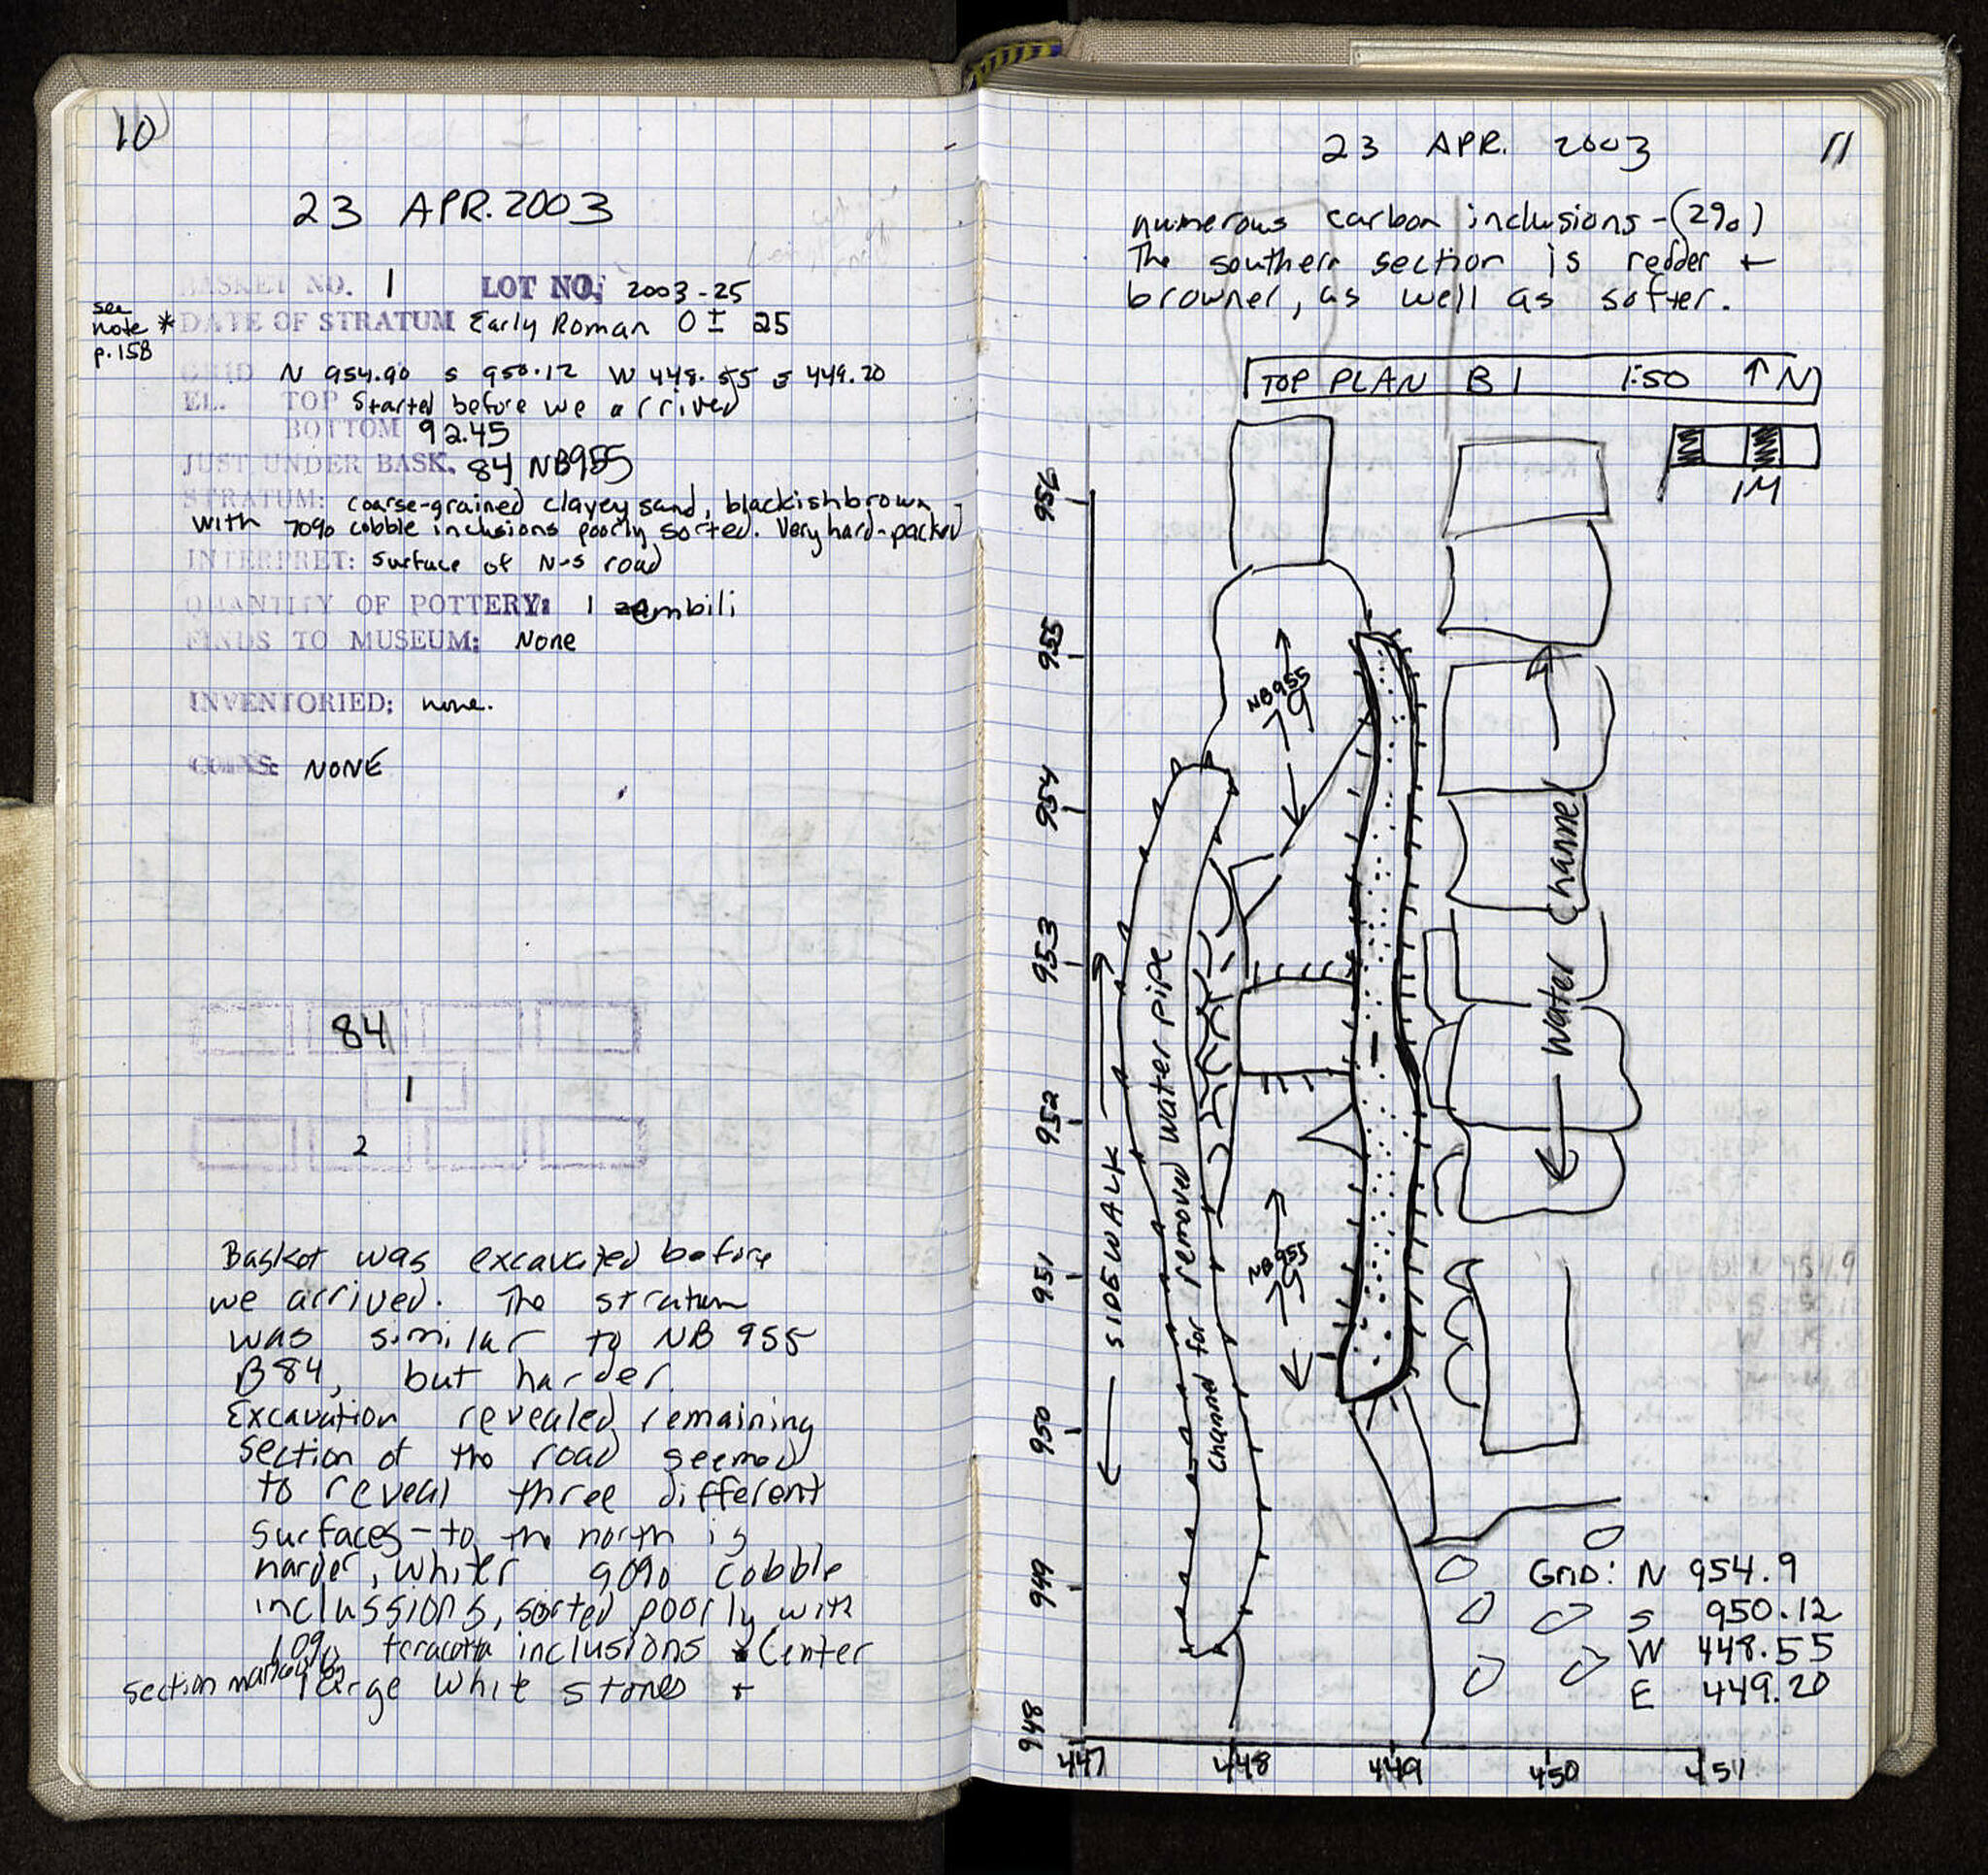 10
23 APR. 2003
BASKET NO. 1 LOT NO. 2003-25
see
note *
p.158
DATE OF STRATUM Early Roman 0 ± 25
GRID N 954.90 S 950.12 W 448.55 E 449.20
EL. TOP Started before we arrived
BOTTOM 92.45
JUST UNDER BASK. 84 NB955
STRATUM: coarse-grained clayey sand, blackishbrown
with 70% cobble inclusions poorly sorted. Very hard-packed
INTERPRET: Surface of N-S road
QUANTITY OF POTTERY: 1 zembili
FINDS TO MUSEUM: None
INVENTORIED: none.
COINS: NONE
84
1
2
Basket was excavated before
we arrived. The stratum
was similar to NB 955
B84, but harder.
Excavation revealed remaining
section of the road seemed
to reveal three different
surfaces - to the north is
harder, whiter 90% cobble
inclussions, sorted poorly with
10% teracotta inclusions Center
section marked by
large white stones +
23 APR. 2003 11
numerous carbon inclusions - (2%)
The southern section is redder +
browner, as well as softer.
TOP PLAN B1 1:50 ↑N
1M
956
955
954
953
952
951
950
949
948
447 448 449 450 451
SIDEWALK
Channel for removed water pipe
NB955
79
NB955
79
Water Channel
GRID: N 954.9
S 950.12
W 448.55
E 449.20